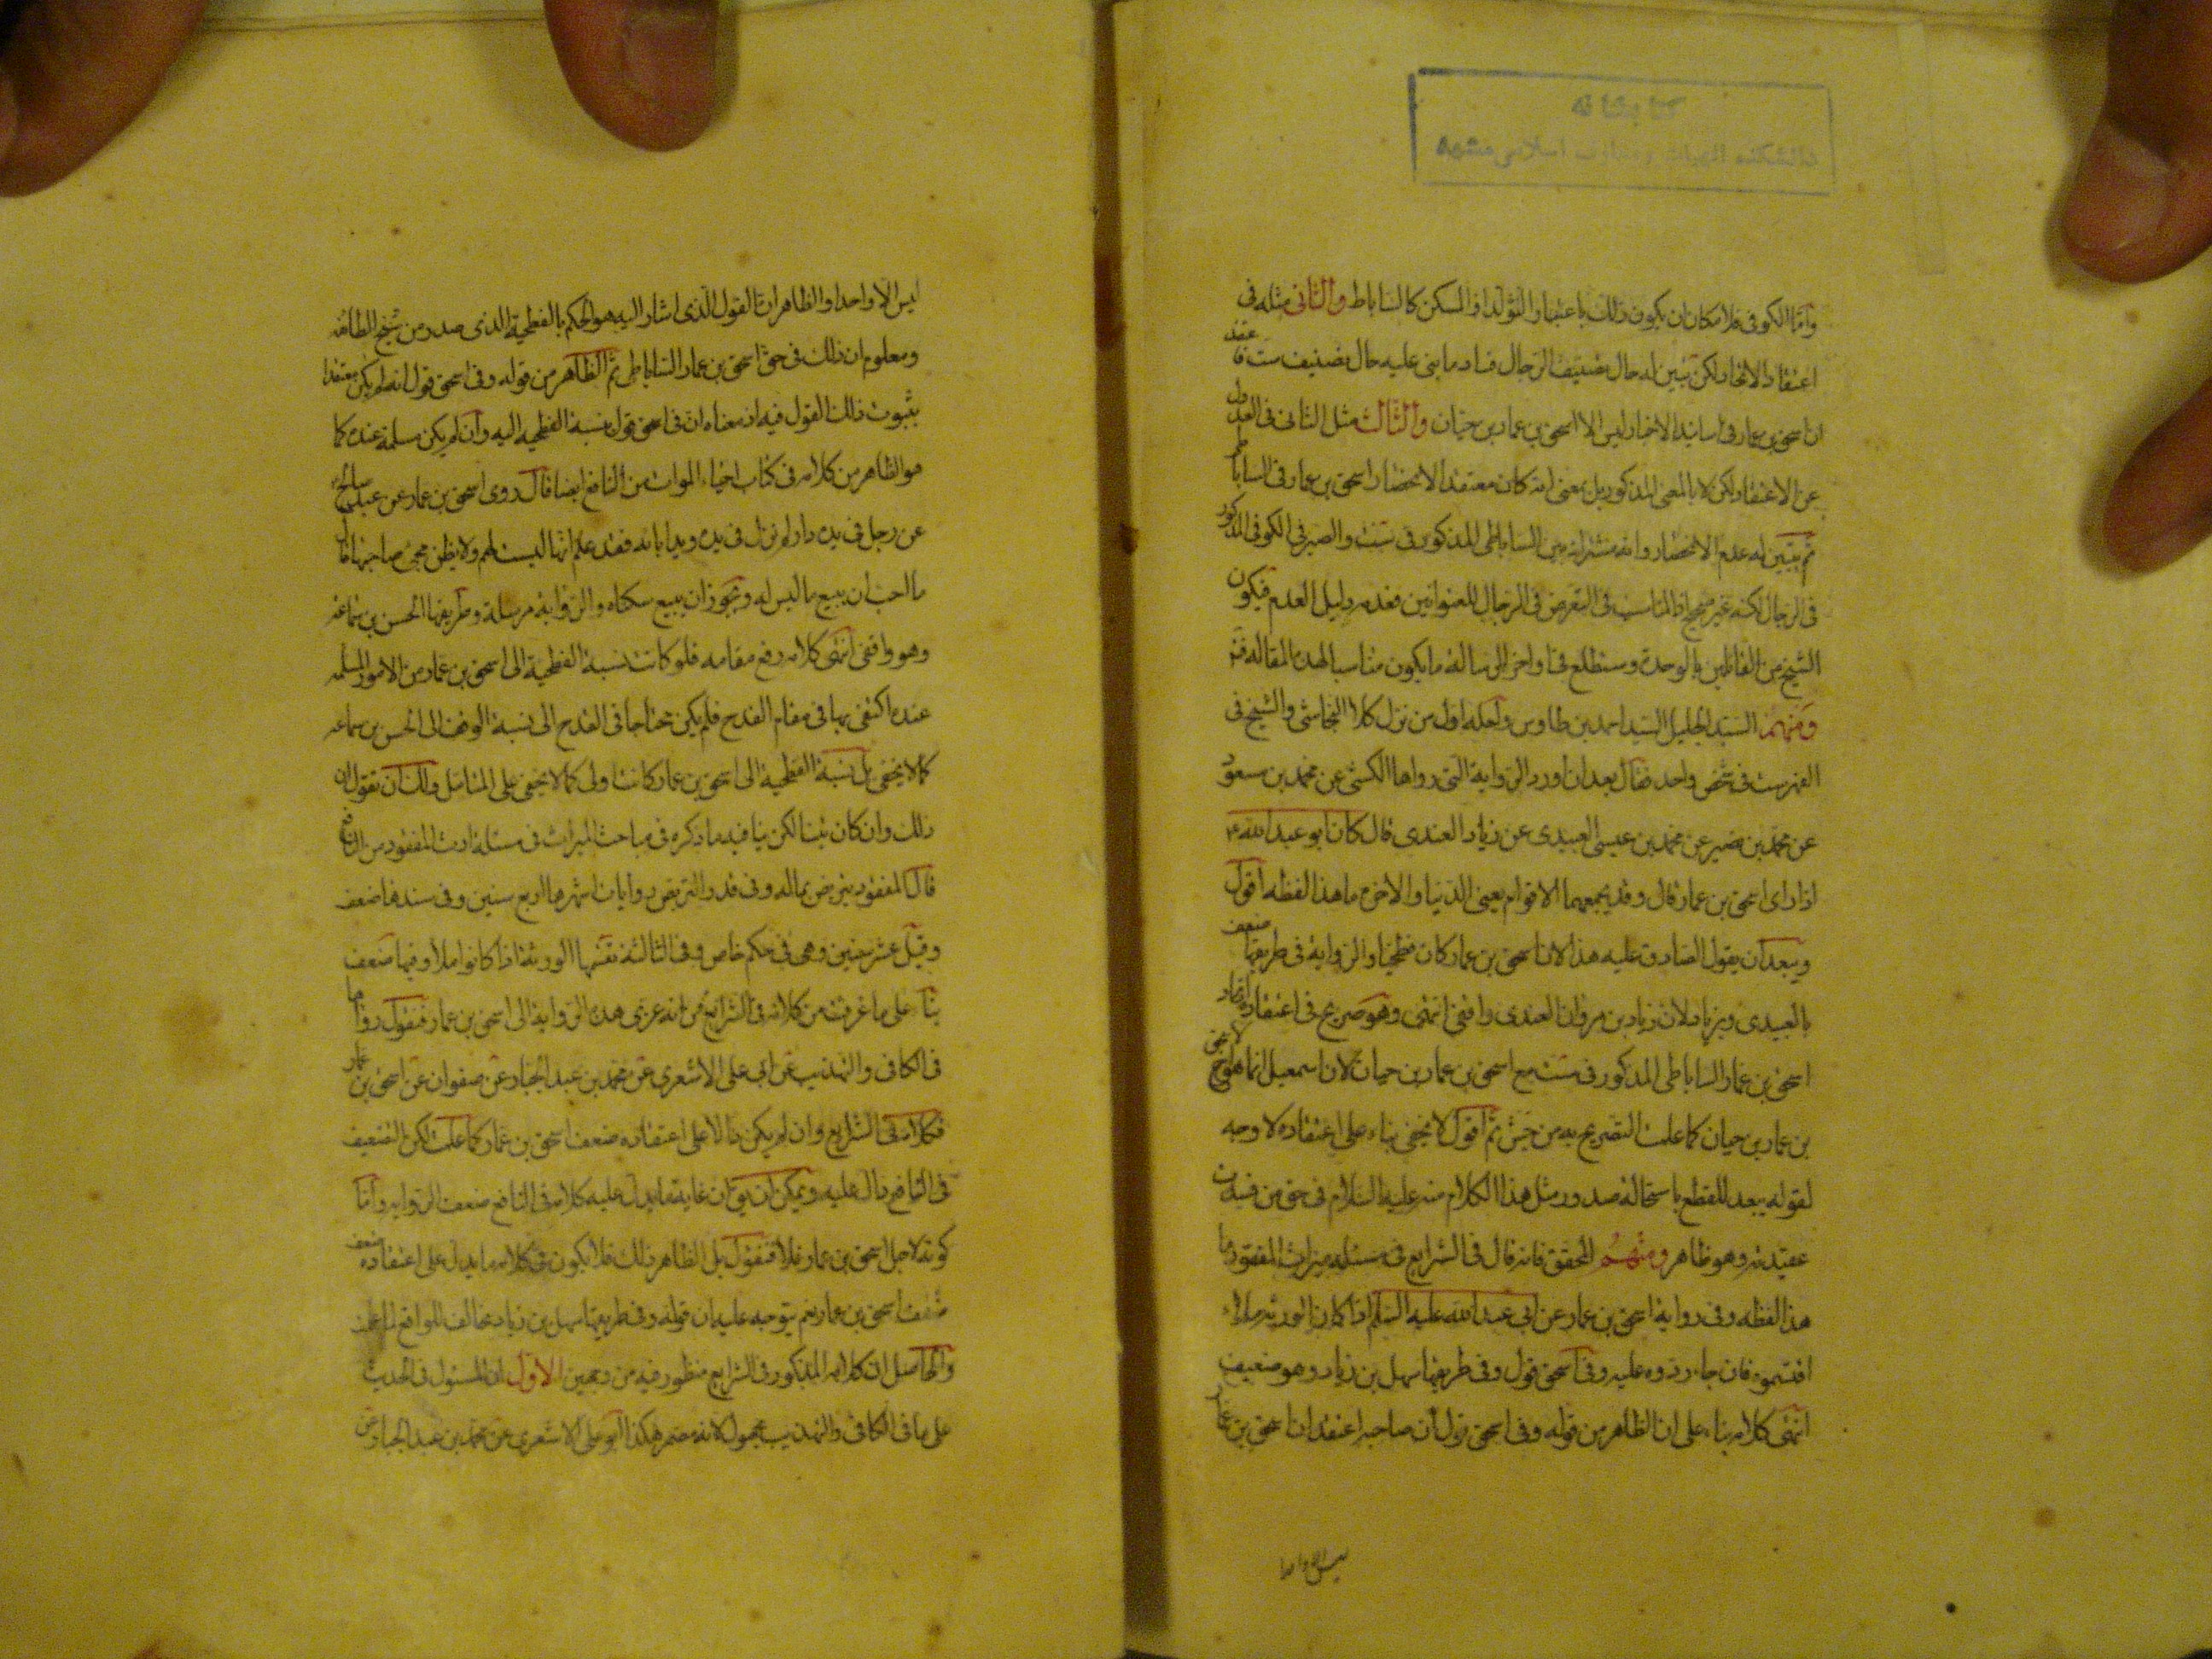 كتابخانه
دانشكده الهيات و معارف اسلامى مشهد
وامّا الكوفى فلامكان ان يكون ذلك باعتبار التولّد او السكن كالساباط والثانى مثله فى
اعتقاد الاتحاد لكن تبيّن له حال تصنيف الرجال فساد ما بنى عليه حال تصنيف ست فاعتقد
ان اسحق بن عمار فى اسانيد الاخبار ليس الا اسحق بن عمار بن حيّان والثالث مثل الثانى فى العدول
عن الاعتقاد لكن لا بالمعنى المذكور بل بمعنى انه كان معتقدا لانحصار اسحق بن عمار فى الساباطى
ثم تبيّن له عدم الانحصار وانه مشترك بين الساباطى المذكور فى ست والصيرفى الكوفى المذكور
فى الرجال لكنه غير صحيح اذ المناسب التعرض فى الرجال للعنوانين فعدمه دليل العدم فيكون
الشيخ من القائلين بالوحدة وستطلع فى اواخر الرسالة ما يكون مناسبا لهذه المقالة
ومنهم السيد الجليل السيد احمد بن طاوس ولعله اول من نزل كلام النجاشى والشيخ فى
الفهرست فى شخص واحد فقال بعد ان اورد الرواية التى رواها الكشى عن محمد بن مسعود
عن محمد بن نصير عن محمد بن عيسى العبيدى عن زياد القندى قال كان ابو عبد الله ع
اذا راى اسحق بن عمار قال وقد يجمعهما الاقوام يعنى الدنيا والاخرة ما هذا لفظه اقول
ويبعد ان يقول الصادق عليه هذا لان اسحق بن عمار كان فطحيا والرواية فى طريقها ضعف
بالعبيدى وبزياد لان زياد بن مروان القندى واقفى انتهى وهو صريح فى اعتقاده اتحاد
اسحق بن عمار الساباطى المذكور فى ست مع اسحق بن عمار بن حيان لان اسمعيل انما هو اخ لاسحق
بن عمار بن حيان كما علمت التصريح به من جش ثم اقول لا يخفى بناء على اعتقاده لا وجه
لقوله يبعد للقطع باستحالة صدور مثل هذا الكلام منه عليه السلام فى حق من فسدت
عقيدته وهو ظاهر ومنهم المحقق فانه قال فى الشرايع فى مسئلة ميراث المفقود ما
هذا لفظه وفى رواية اسحق بن عمار عن ابى عبد الله عليه السلم اذا كان الورثة ملاء
اقتسموه فان جاء ردّوه عليه وفى اسحق قول وفى طريقها سهل بن زياد وهو ضعيف
انتهى كلامه بناء على ان الظاهر من قوله وفى اسحق قول ان صاحبه اعتقد ان اسحق بن عمار
ليس الا واحدا
ليس الا واحدا والظاهر ان القول الذى اشار اليه هو الحكم بالفطحية الذى صدر من شيخ الطائفه
ومعلوم ان ذلك فى حق اسحق بن عمار الساباطى ثم الظاهر من قوله وفى اسحق قول انه لم يكن معتقدا
بثبوت ذلك القول فيه اذ معناه ان فى اسحق قول بنسبة الفطحية اليه وان لم يكن مسلمة عنده كما
هو الظاهر من كلامه فى كتاب احياء الموات من النافع ايضا قال روى اسحق بن عمار عن عبد صالح
عن رجل فى يده دار لم تزل فى يده ويد ابائه فقد علم انها ليست لهم ولا يظن مجئ صاحبها قال
ما احب ان يبيع ما ليس له ويجوز ان يبيع سكناه والرواية مرسلة وطريقها الحسن بن سماعة
وهو واقفى انتهى كلامه رفع مقامه فلو كانت نسبة الفطحية الى اسحق بن عمار من الامور المسلمه
عنده اكتفى بها فى مقام القدح فلم يكن محتاجا فى القدح الى نسبة الوقف الى الحسن بن سماعه
كما لا يخفى بل نسبة الفطحية الى اسحق بن عمار كانت اولى كما لا يخفى على المتامل ولك ان تقول ان
ذلك وان كان بيّنا لكن ينافيه ما ذكره فى مباحث الميراث فى مسئلة ارث المفقود من النافع
قال المفقود يتربص بماله وفى قدر التربص روايات اشهرها اربع سنين وفى سندها ضعف
وقيل عشر سنين وهى فى حكم خاص وفى الثالثة تقسمها الورثة اذا كانوا ملاء وفيها ضعف
بناء على ما عرفت من كلامه فى الشرايع من انه عزى هذه الرواية الى اسحق بن عمار فنقول رواها
فى الكافى والتهذيب عن ابى على الاشعرى عن محمد بن عبد الجبار عن صفوان عن اسحق بن عمار
فكلامه فى الشرايع وان لم يكن دالا على اعتقاده ضعف اسحق بن عمار كما علمت لكن التضعيف
فى النافع دال عليه ويمكن ان يق ان غاية ما يدل عليه كلامه فى النافع ضعف الرواية وامّا
كونه لاجل اسحق بن عمار فلا فنقول بل الظاهر ذلك فلا يكون فى كلامه ما يدل على اعتقاده ضعف
اسحق بن عمار نعم يتوجه عليه ان قوله وفى طريقها سهل بن زياد مخالف للواقع لما علمت
والحاصل ان كلامه المذكور فى الشرايع منظور فيه من وجهين الاول ان المسئول فى الحديث
على ما فى الكافى والتهذيب مجهول لانه مضمر هكذا ابو على الاشعرى عن محمد بن عبد الجبار عن